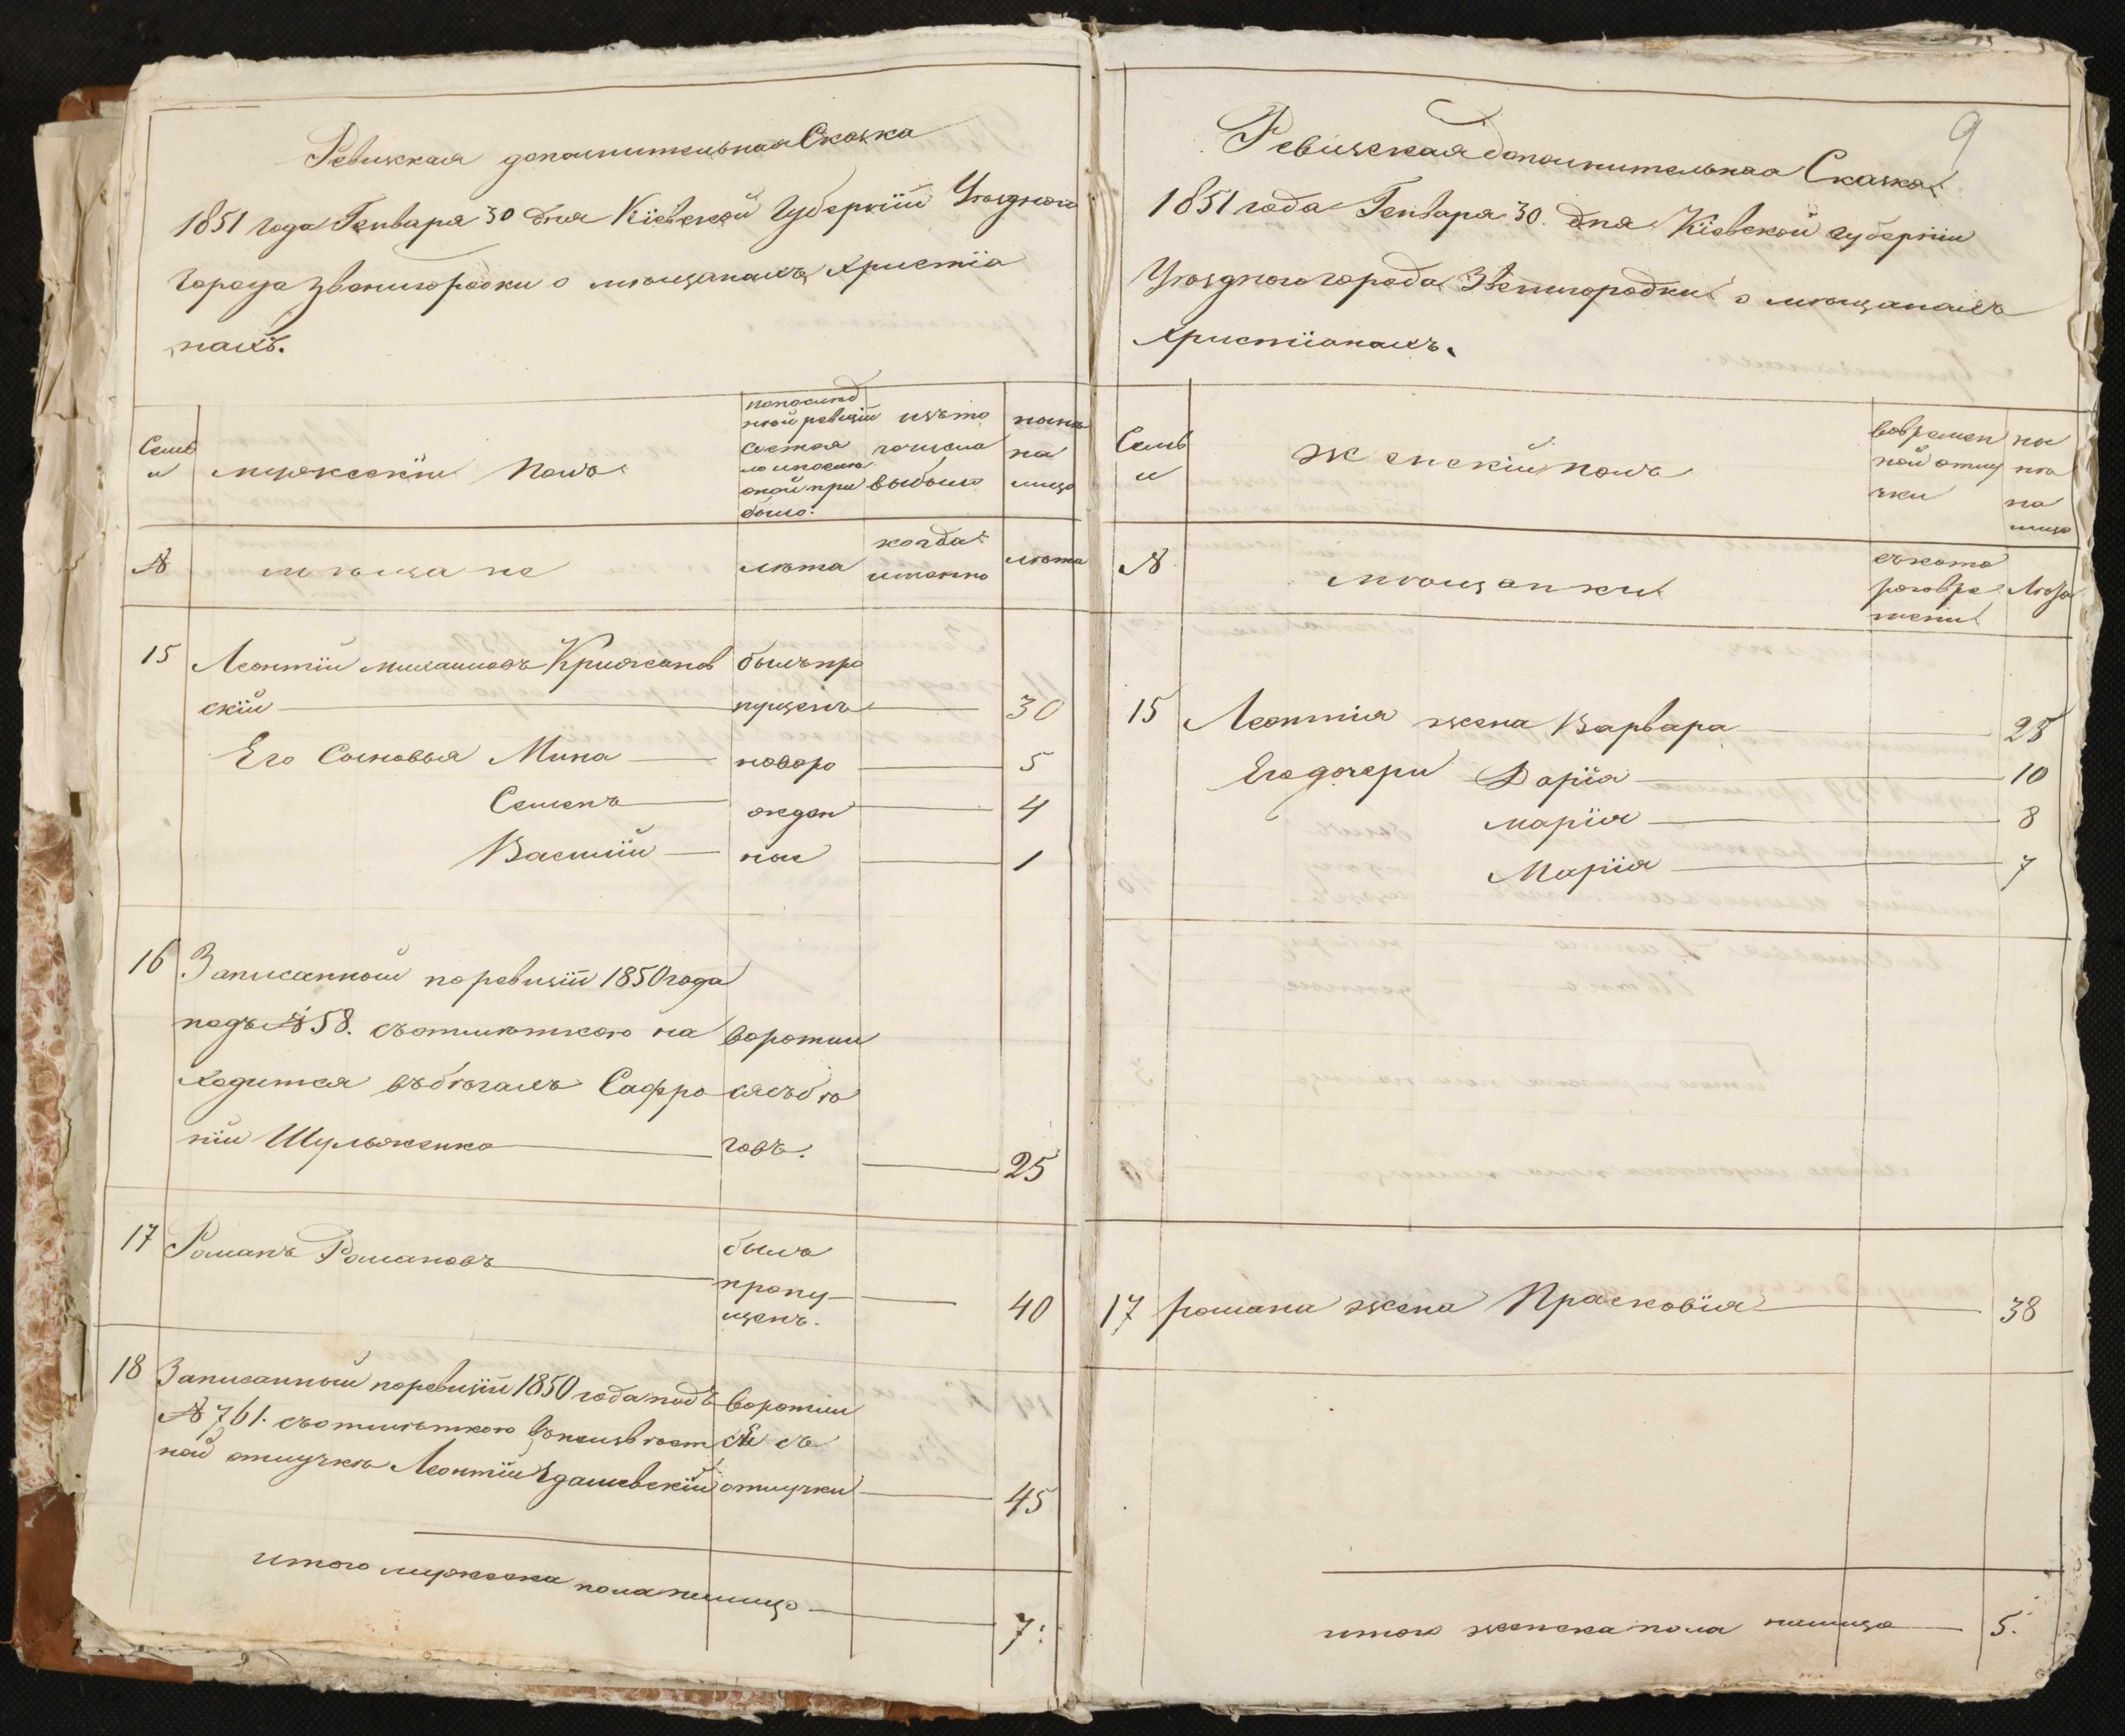 Ревижская дополнительная Сказка
1851 года Генваря 30 дня Кіевской Губерніи Уѣзднаго
города Звенигородки о мѣщанахъ Христіа
нахъ.
Семьи
мужескій полъ
по послѣд
ней ревизіи
состоя
ло и послѣ
оной при
было:
изъ то
го числа
выбыло
нынѣ
на
лицо
№
мѣщане
лѣта
когда
именно
лѣта
15 Леонтій Михаиловъ Крижанов былъ про
скій пущенъ 30
Его Сыновья Мина новоро 5
Семенъ жден 4
Василій ные 1
16 Записанной по ревизіи 1850 года
подъ № 58. съ отмѣткою на воротил
ходится въ бѣгахъ Сафро ся съ бѣ
ній Шульженко говъ. 25
17 Романъ Романовъ былъ
пропу 40
щенъ.
18 Записанный по ревизіи 1850 года подъ воротил
№ 761. съ отмѣткою въ неизвѣст ся съ
ной отлучкѣ Леонтій отлучки 45
итого мужеска пола налицо 7.
9
Ревизская дополнительная Сказка
1851 года Генваря 30. дня Кіевской губерніи
Уѣзднаго города Звенигородки о мѣщанахъ
Христіанахъ.
Семьи
женскій полъ
во времен
ной отлу
чки
ны
нѣ
на
лицо
№
мѣщанки
съ кото
раго вре
мени
Лѣта
15 Леонтія жена Варвара 28
Его дочери Дарія 10
Марія 8
Марія 7
17 романа жена Прасковія 38
итого женска пола налицо 5.